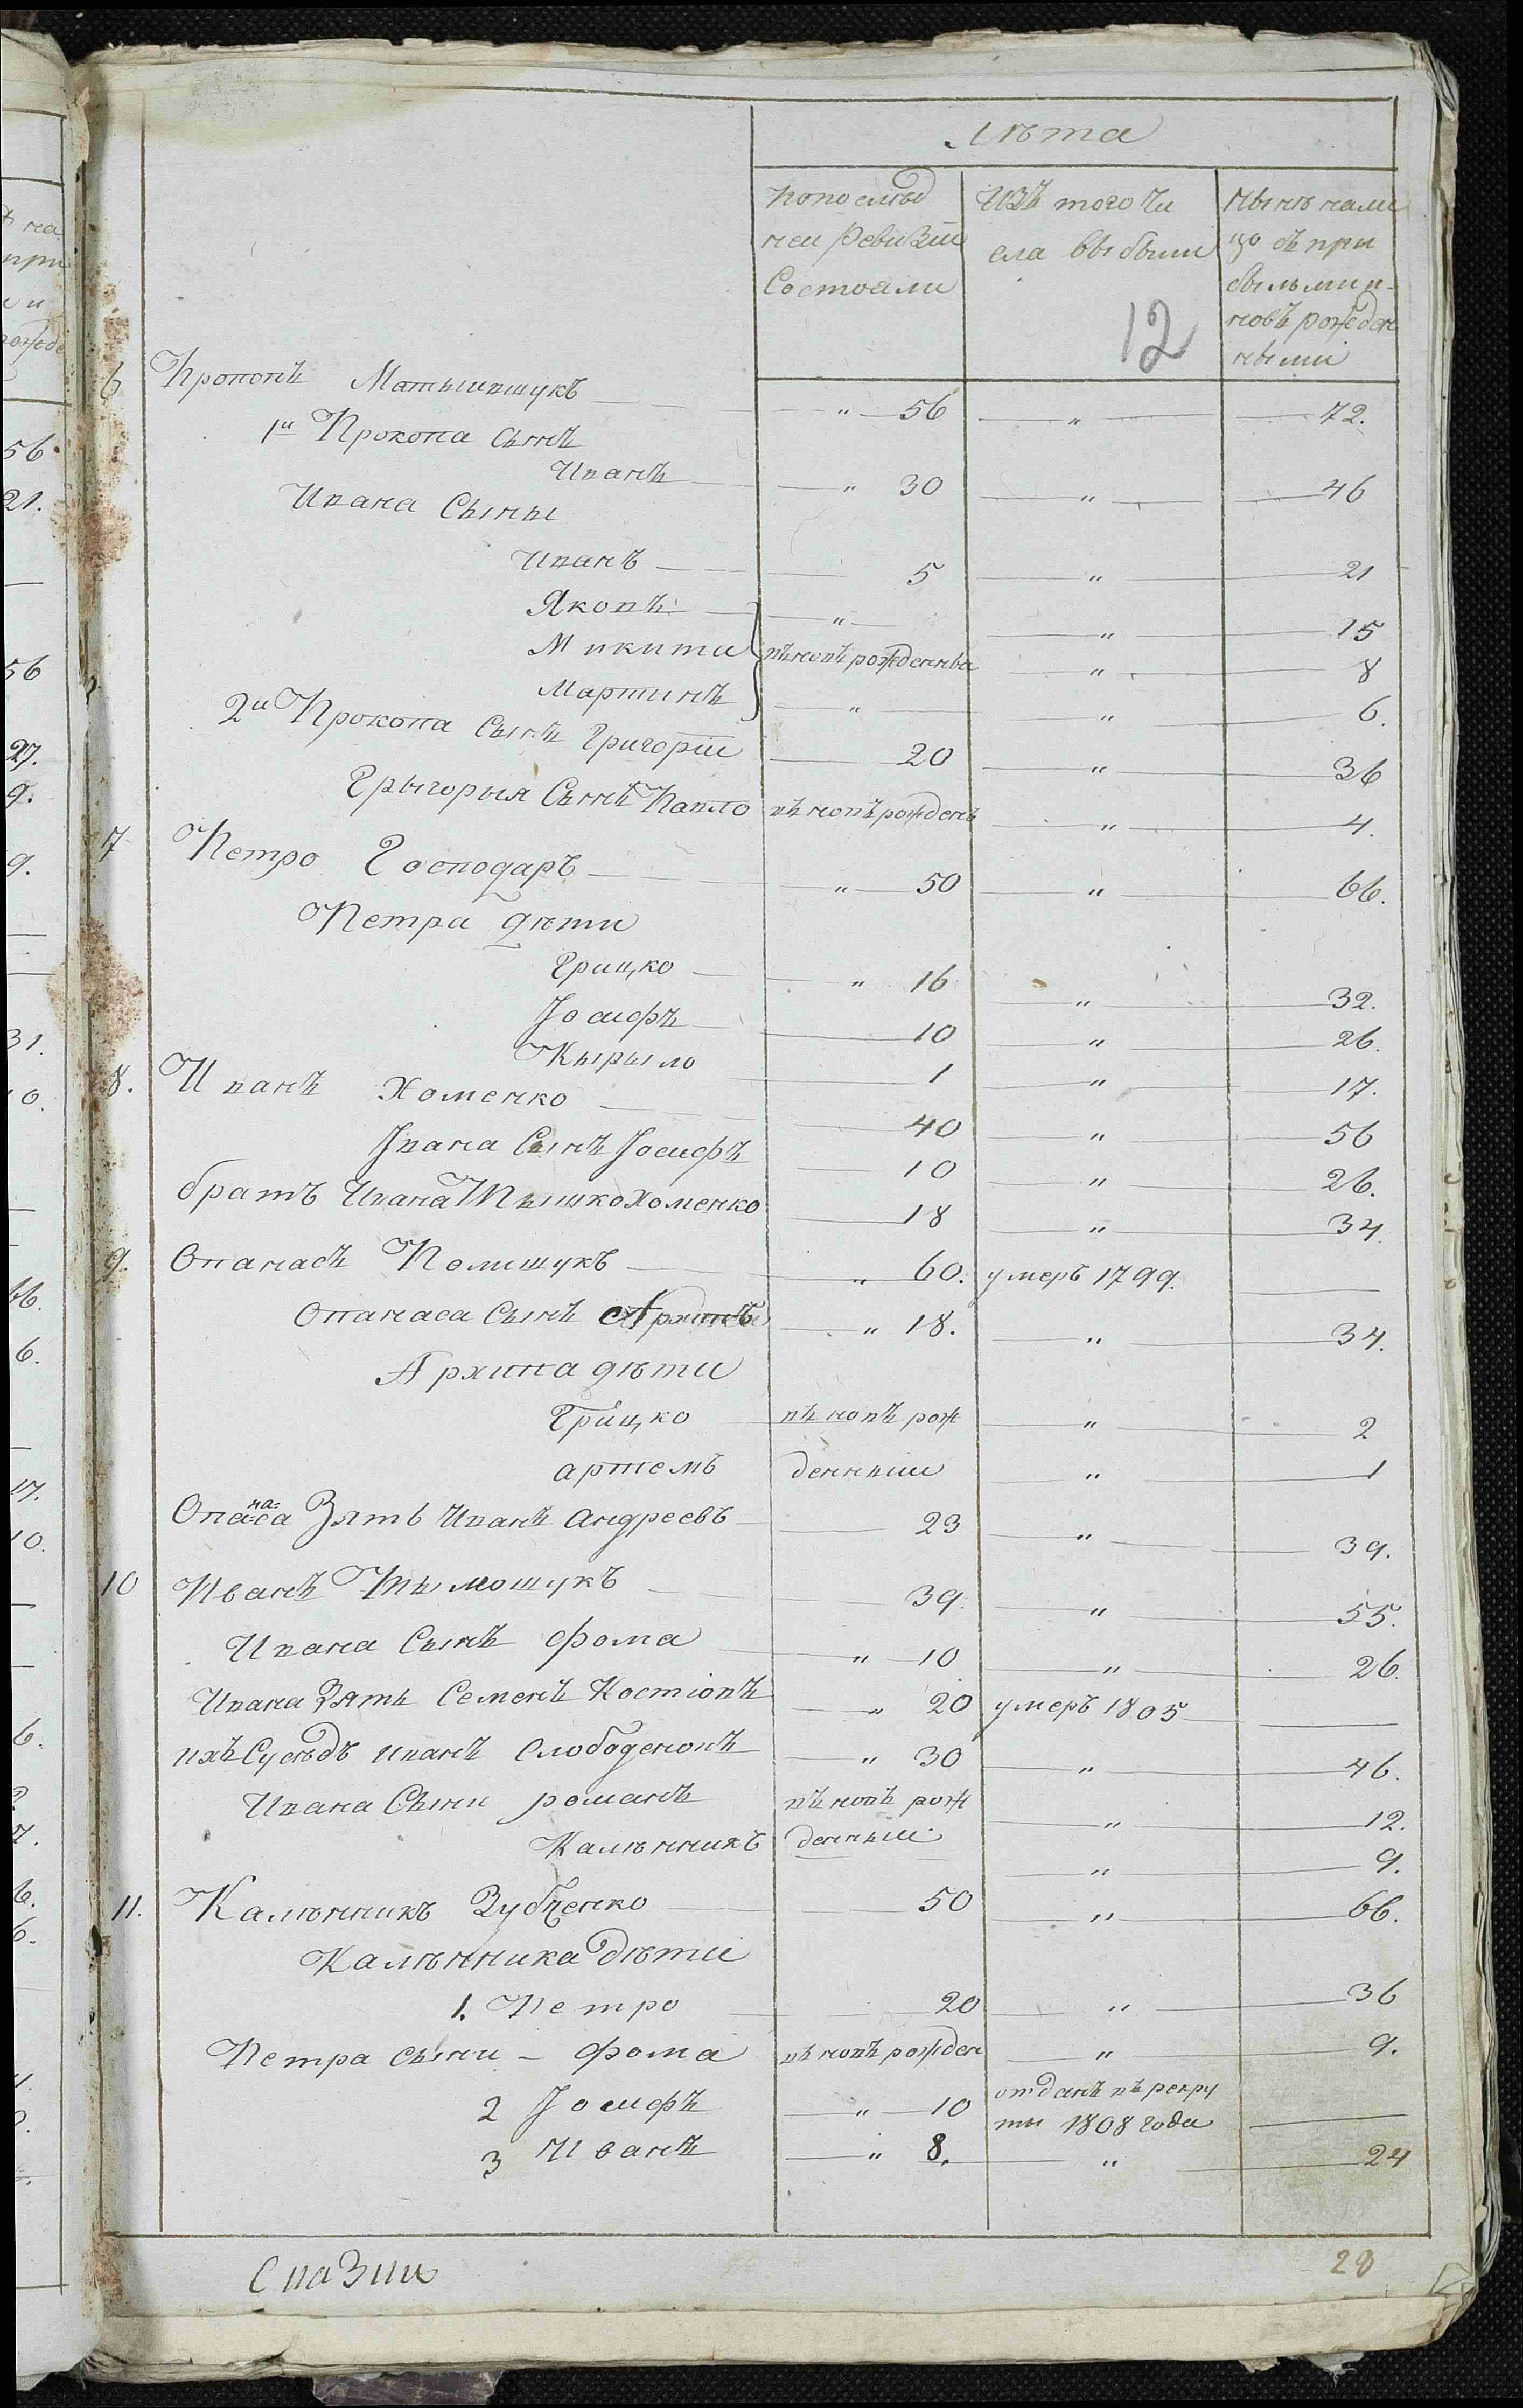 Лѣта
по послѣд
ней Ревизіи
Состояли
Изъ того чи
сла выбыли
Нынѣ нали
цо съ при
былыми и
новъ рожден
ными
12
6 Прокопъ Матыишукъ — " — 56 — " — 72.
1й Прокопа Сынъ
Иванъ — " 30 — " — 46
Ивана Сыны
Иванъ — 5 — " — 21
Яковъ — " — " — 15
Микита въ новъ рожденны — " — 8
Мартинъ — " — " — 6.
2й Прокопа Сынъ Григорій — 20 — " — 36
Грыгорыя Сынъ Павло въ новъ рожденъ — " — 4.
7 Петро Господаръ — " — 50 — " — 66.
Петра дѣти
Грицко — " 16 — " — 32.
Іосифъ — 10 — " — 26.
Кырыло — 1 — " — 17.
8. Иванъ Хоменко — 40 — " — 56
Івана Сынъ Іосифъ — 10 — " — 26.
братъ Ивана Тышко Хоменко — 18 — " — 34.
9. Опанасъ Полишукъ — " 60. умеръ 1799. —
Опанаса Сынъ Архипъ — " 18. — " — 34.
Архипа дѣти
Грицко въ новъ рож — " — 2
артемъ денныи — " — 1
на
Опаса Зять Иванъ андреевъ — 23 — " — 39.
10 Иванъ Тымошукъ — 39. — " — 55.
Ивана Сынъ фома — " — 10 — " — 26.
Ивана Зять Семенъ Костіовъ — " 20 умеръ 1805 —
ихъ Сусѣдъ иванъ Слободеновъ — " 30 — " — 46.
Ивана Сыни романъ въ новъ рож — " — 12.
Калѣнникъ денныи — " — 9.
11. Калѣнникъ Зубченко — 50 — " — 66.
Калѣнника Дѣти
1. Петро — 20 — " — 36
Петра сыни — фома въ новъ рожден — " — 9.
2 Іосифъ — " — 10 отданъ въ рекру
ты 1808 года —
3 Иванъ — " 8. — " — 24
28